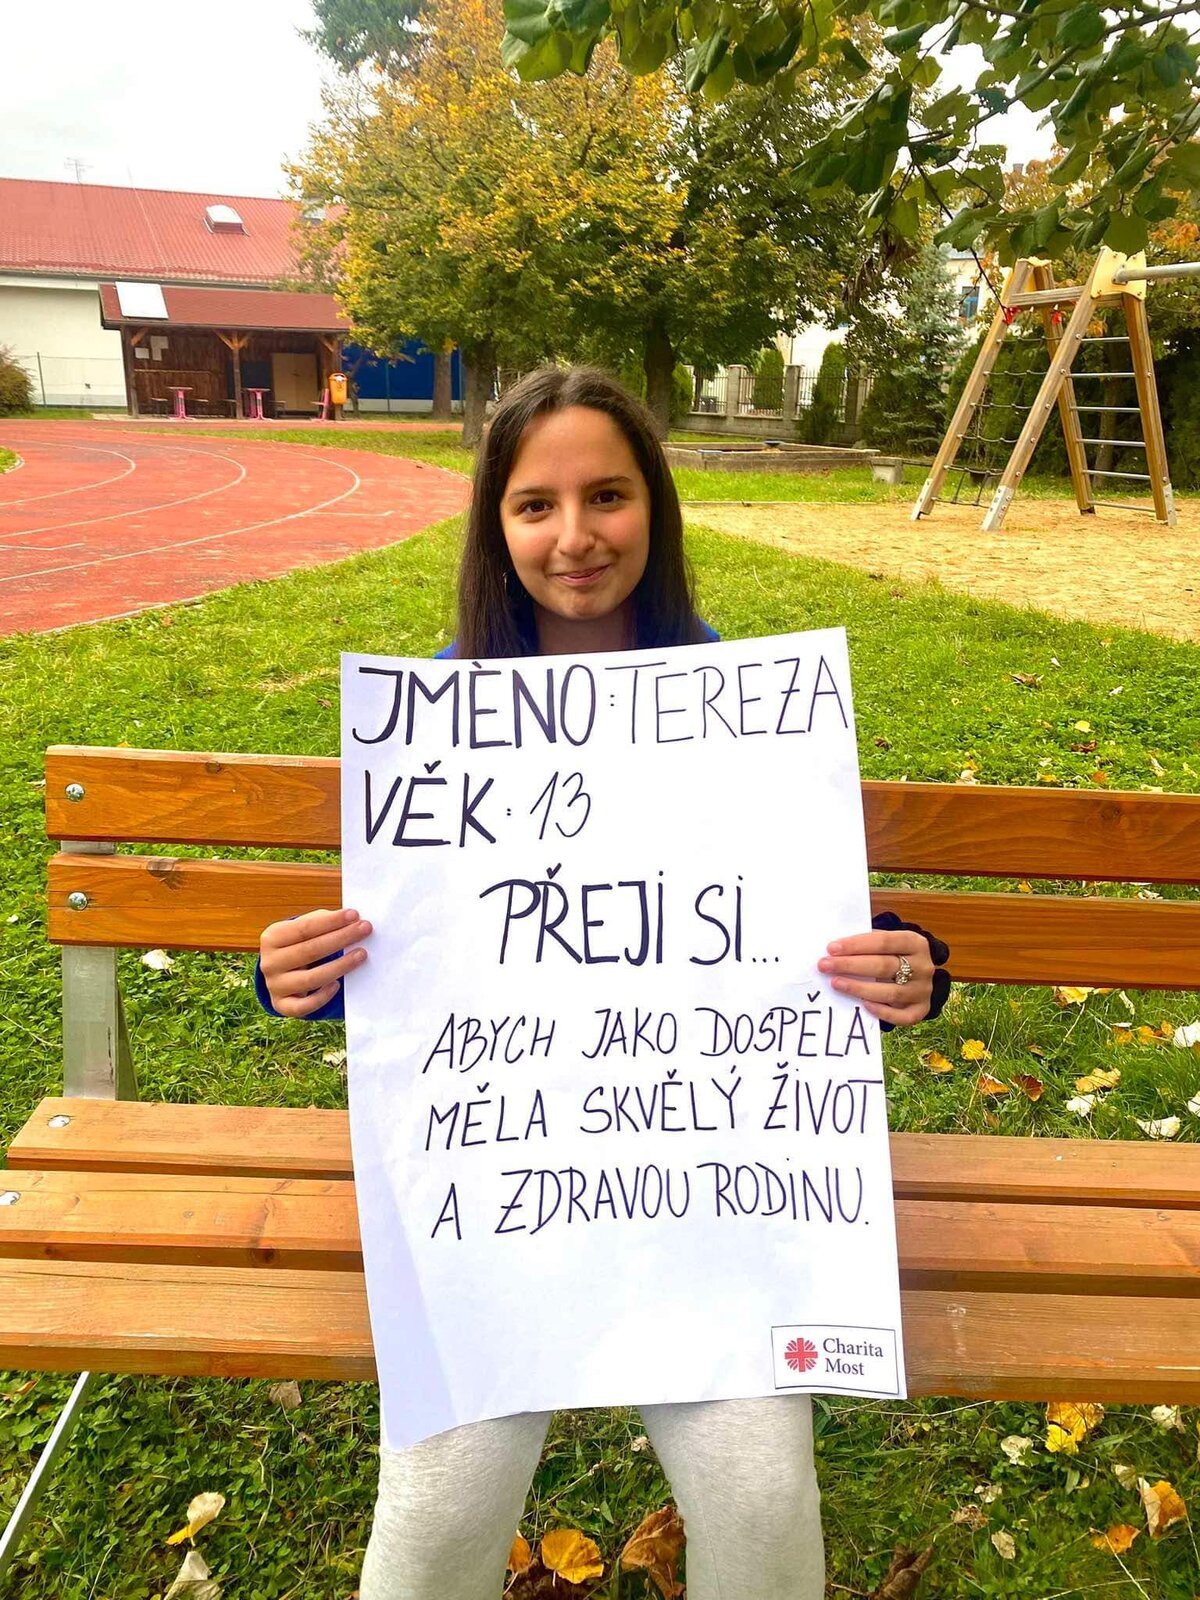 JMÈNO: TEREZA
VĚK: 13
PŘEJI SI...
ABYCH JAKO DOSPĚLA
MĚLA SKVĚLÝ ŽIVOT
A ZDRAVOU RODINU.
Charita
Most